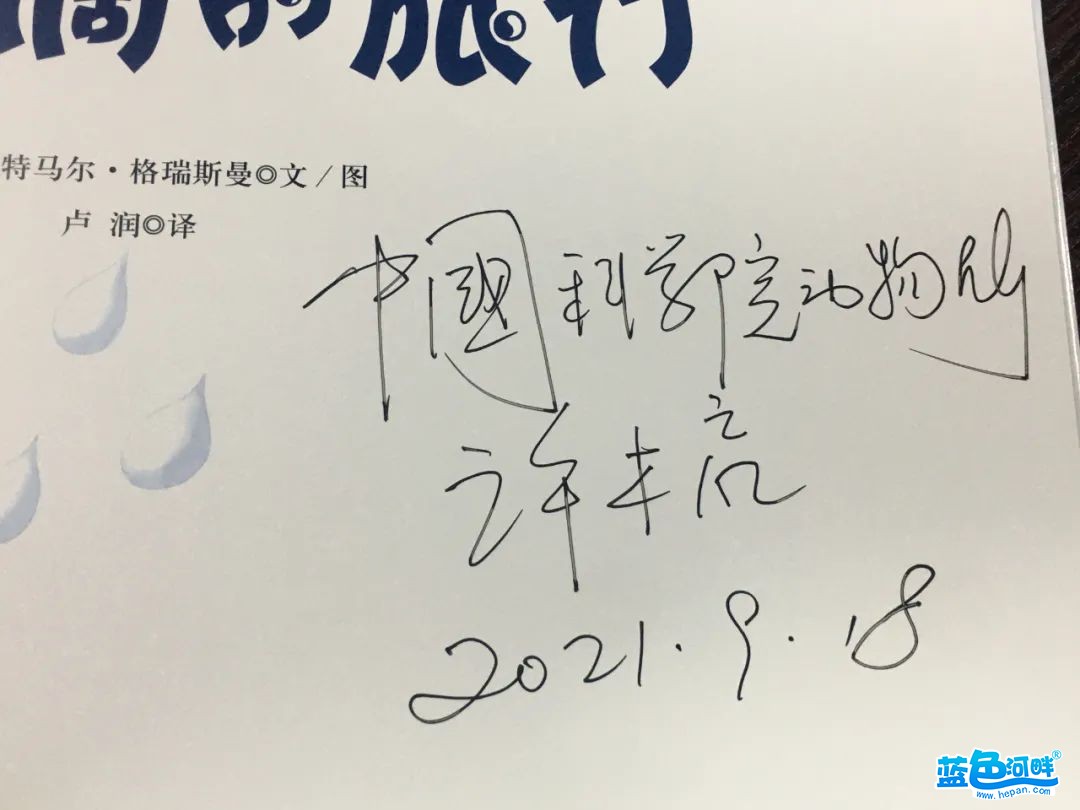 滴的旅行
特马尔·格瑞斯曼◎文/图
卢 润◎译
中國科学院动物所
许丰亮
2021.9.18
蓝色河畔®
www.hepan.com